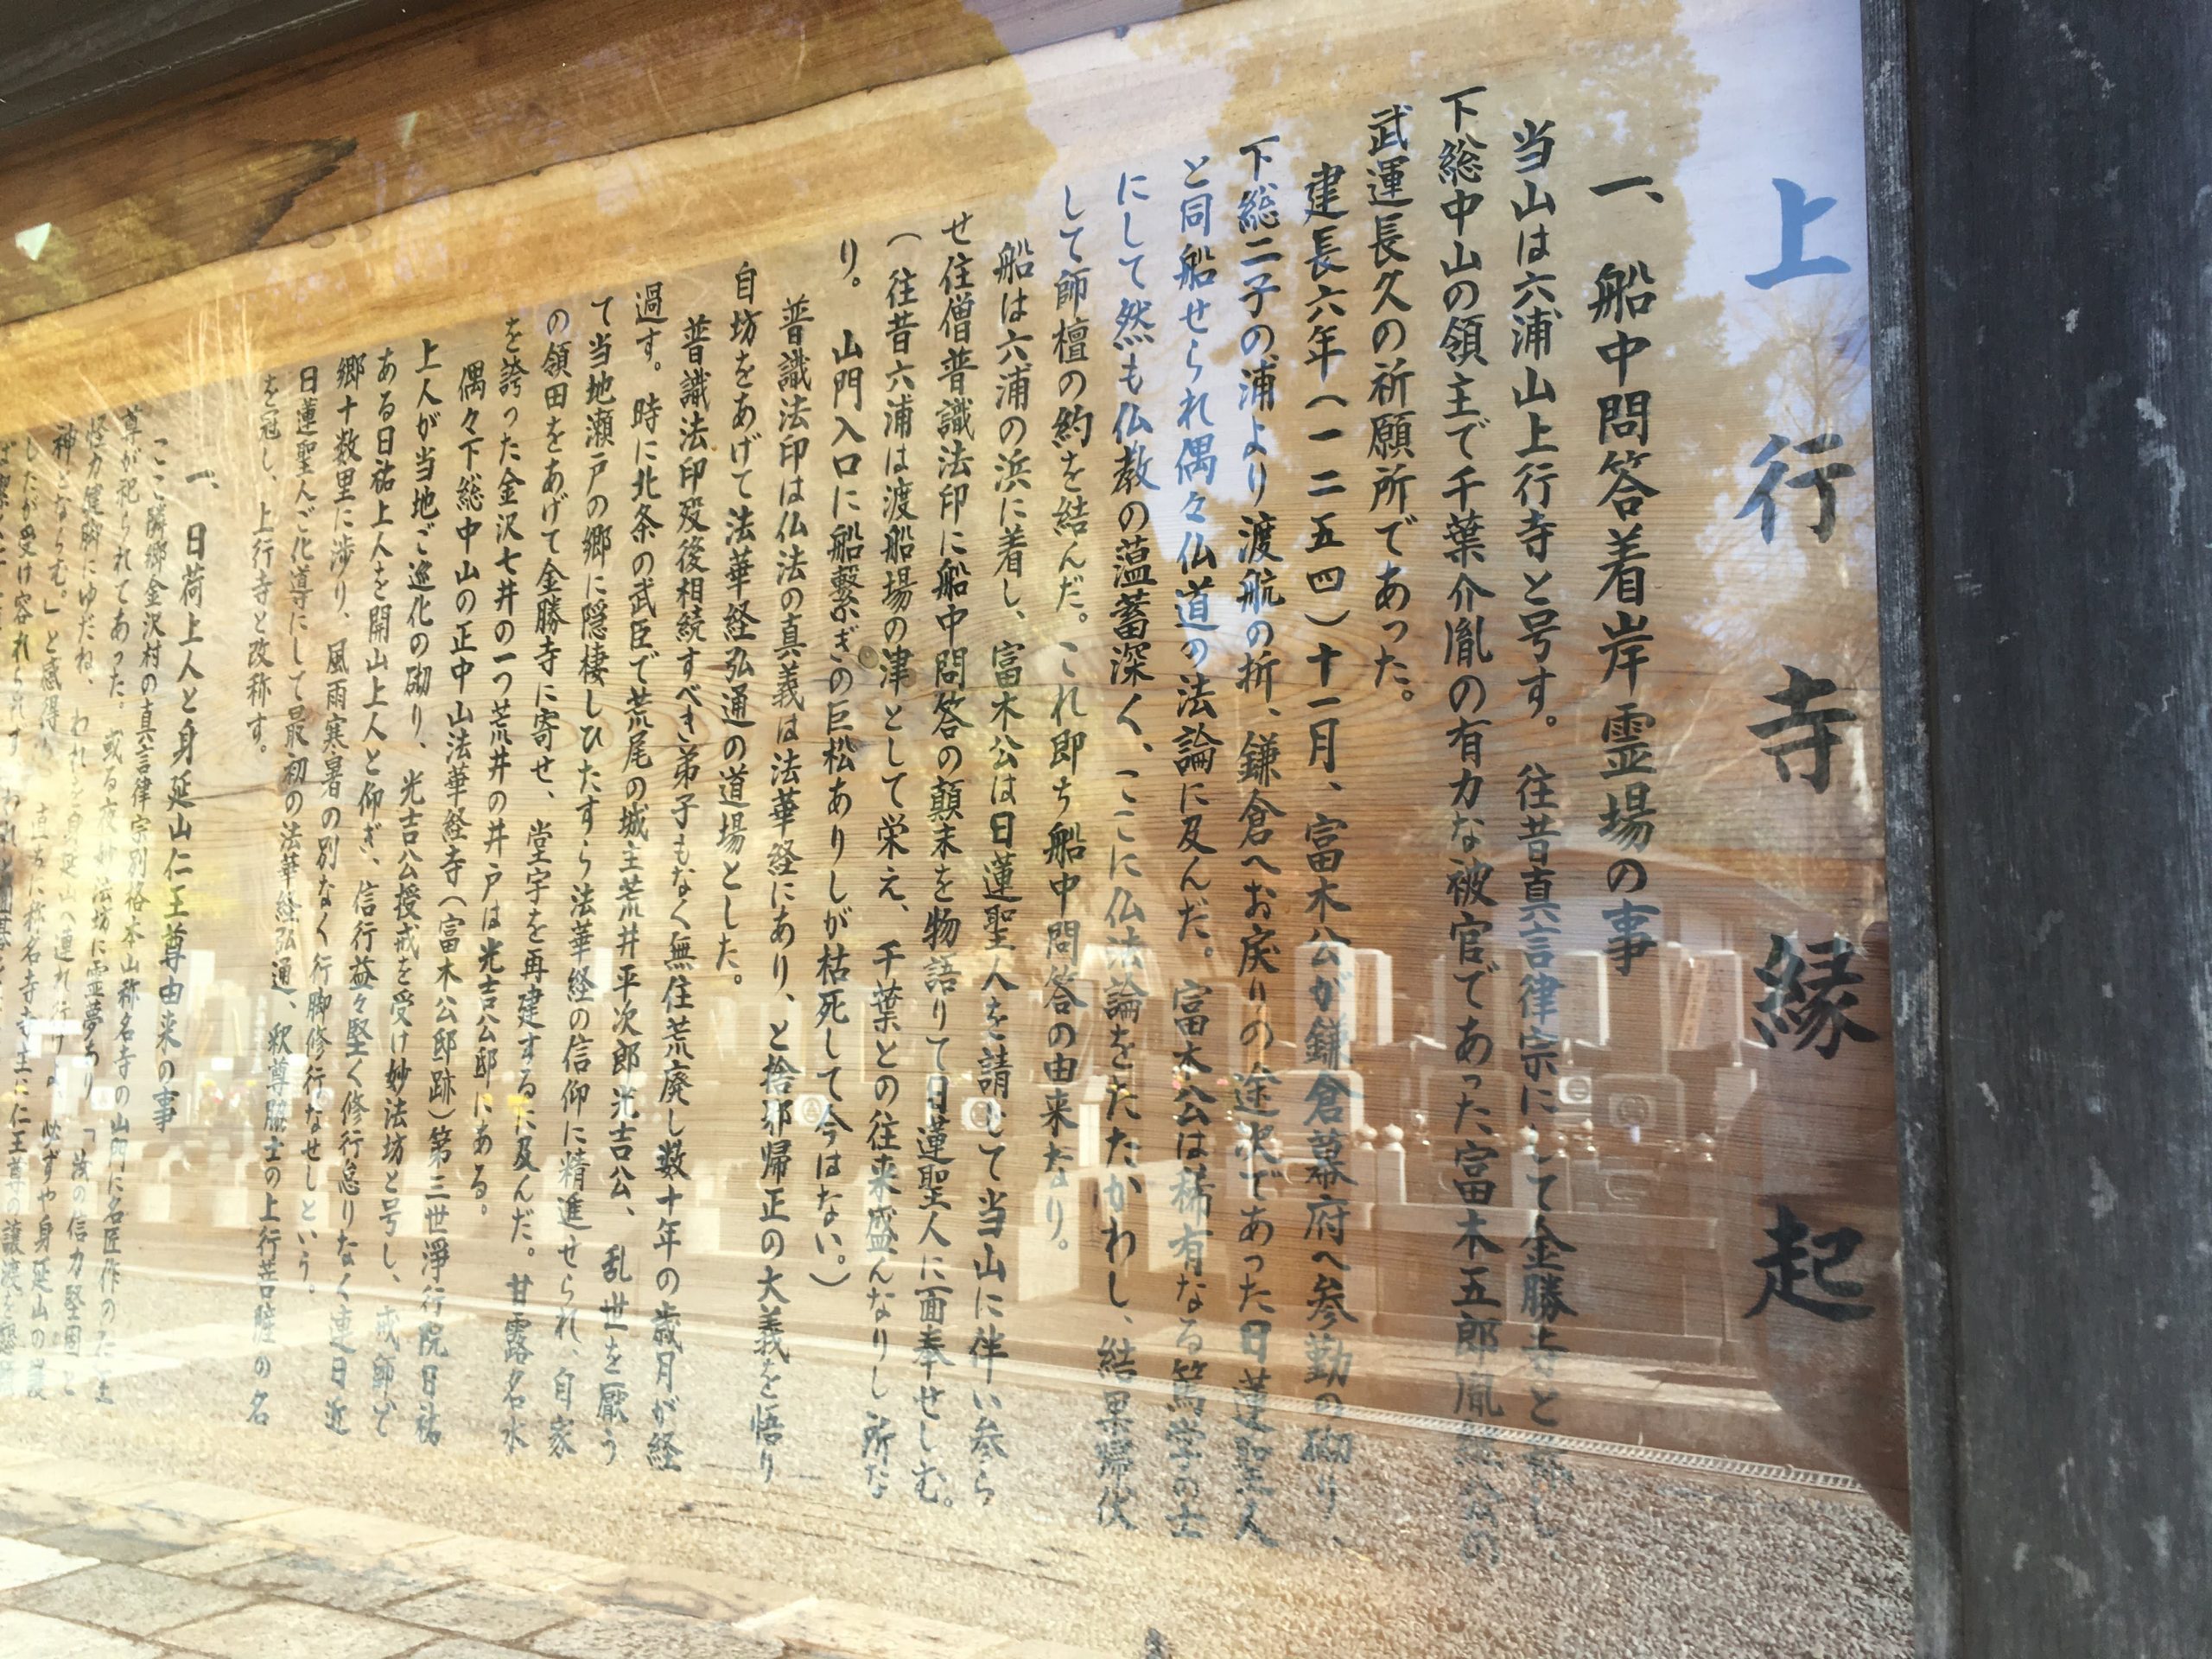 上行寺縁起
一、船中問答着岸霊場の事
当山は六浦山上行寺と号す。往昔真言律宗にして金勝寺と称し、
下総中山の領主で千葉介胤の有力な被官であった富木五郎胤継公の
武運長久の祈願所であった。
建長六年(一二五四)十一月、富木公が鎌倉幕府へ参勤の砌り、
下総二子の浦より渡航の折、鎌倉へお戻りの途次であった日蓮聖人
と同船せられ偶々仏道の法論に及んだ。富木公は稀有なる篤学の士
にして然も仏教の薀蓄深く、ここに仏法論をたたかわし、結果帰伏
して師檀の約を結んだ。これ即ち船中問答の由来なり。
船は六浦の浜に着し、富木公は日蓮聖人を請じて当山に伴い参ら
せ住僧普識法印に船中問答の顛末を物語りて日蓮聖人に面奉せしむ。
(往昔六浦は渡船場の津として栄え、千葉との往来盛んなりし所な
り。山門入口に船繋ぎの巨松ありしが枯死して今はない。)
普識法印は仏法の真義は法華経にあり、と捨邪帰正の大義を悟り
自坊をあげて法華経弘通の道場とした。
普識法印歿後相続すべき弟子もなく無住荒廃し数十年の歳月が経
過す。時に北条の武臣で荒尾の城主荒井平次郎光吉公、乱世を厭う
て当地瀬戸の郷に隠棲しひたすら法華経の信仰に精進せられ、自家
の領田をあげて金勝寺に寄せ、堂宇を再建するに及んだ。甘露名水
を誇った金沢七井の一つ荒井の井戸は光吉公邸にある。
偶々下総中山の正中山法華経寺(富木公邸跡)第三世淨行院日祐
上人が当地ご巡化の砌り、光吉公授戒を受け妙法坊と号し、戒師で
ある日祐上人を開山上人と仰ぎ、信行益々堅く修行怠りなく連日近
郷十数里に渉り、風雨寒暑の別なく行脚修行なせしという。
日蓮聖人ご化導にして最初の法華経弘通、釈尊脇士の上行菩薩の名
を冠し、上行寺と改称す。
一、日荷上人と身延山仁王尊由来の事
ここ隣郷金沢村の真言律宗別格本山称名寺の山門に名匠作の仁王
尊が祀られてあった。或る夜妙法坊に霊夢あり「汝の信力堅固と
怪力健脚にゆだね、われを身延山へ連れ行けよ、必ずや身延山の護
神とならむ。」と感得し、直ちに称名寺寺主に仁王尊の譲渡を懇
したが受け容れられず